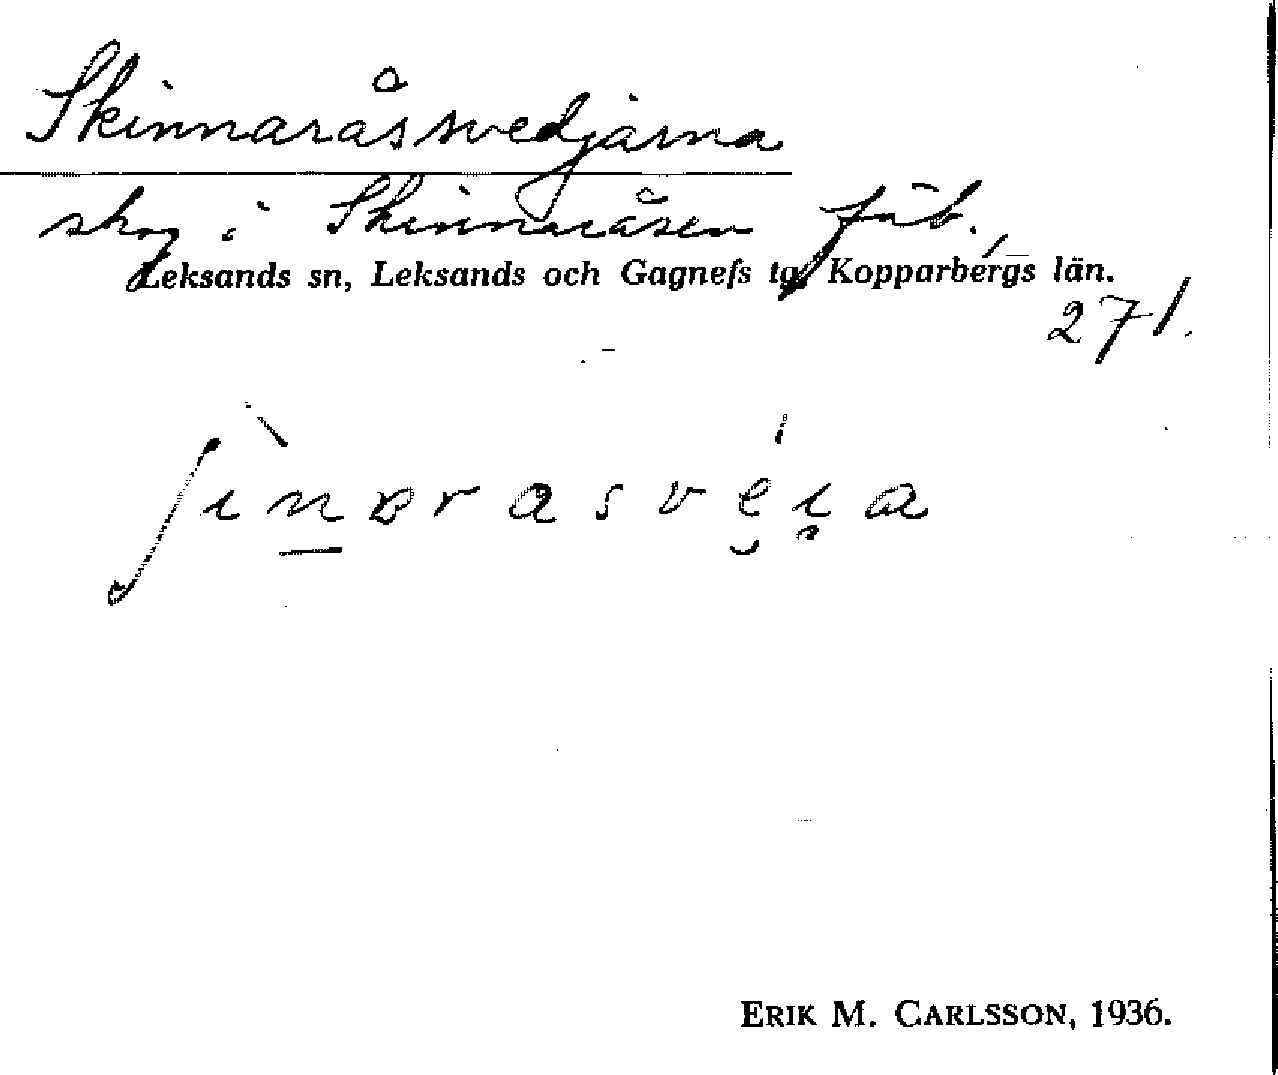 Skinnaråssvedjarna
skog i Skinnaråsen fäb.,
Leksands sn, Leksands och Gagnefs tg, Kopparbergs län.
271.
ERIK M. CARLSSON, 1936.